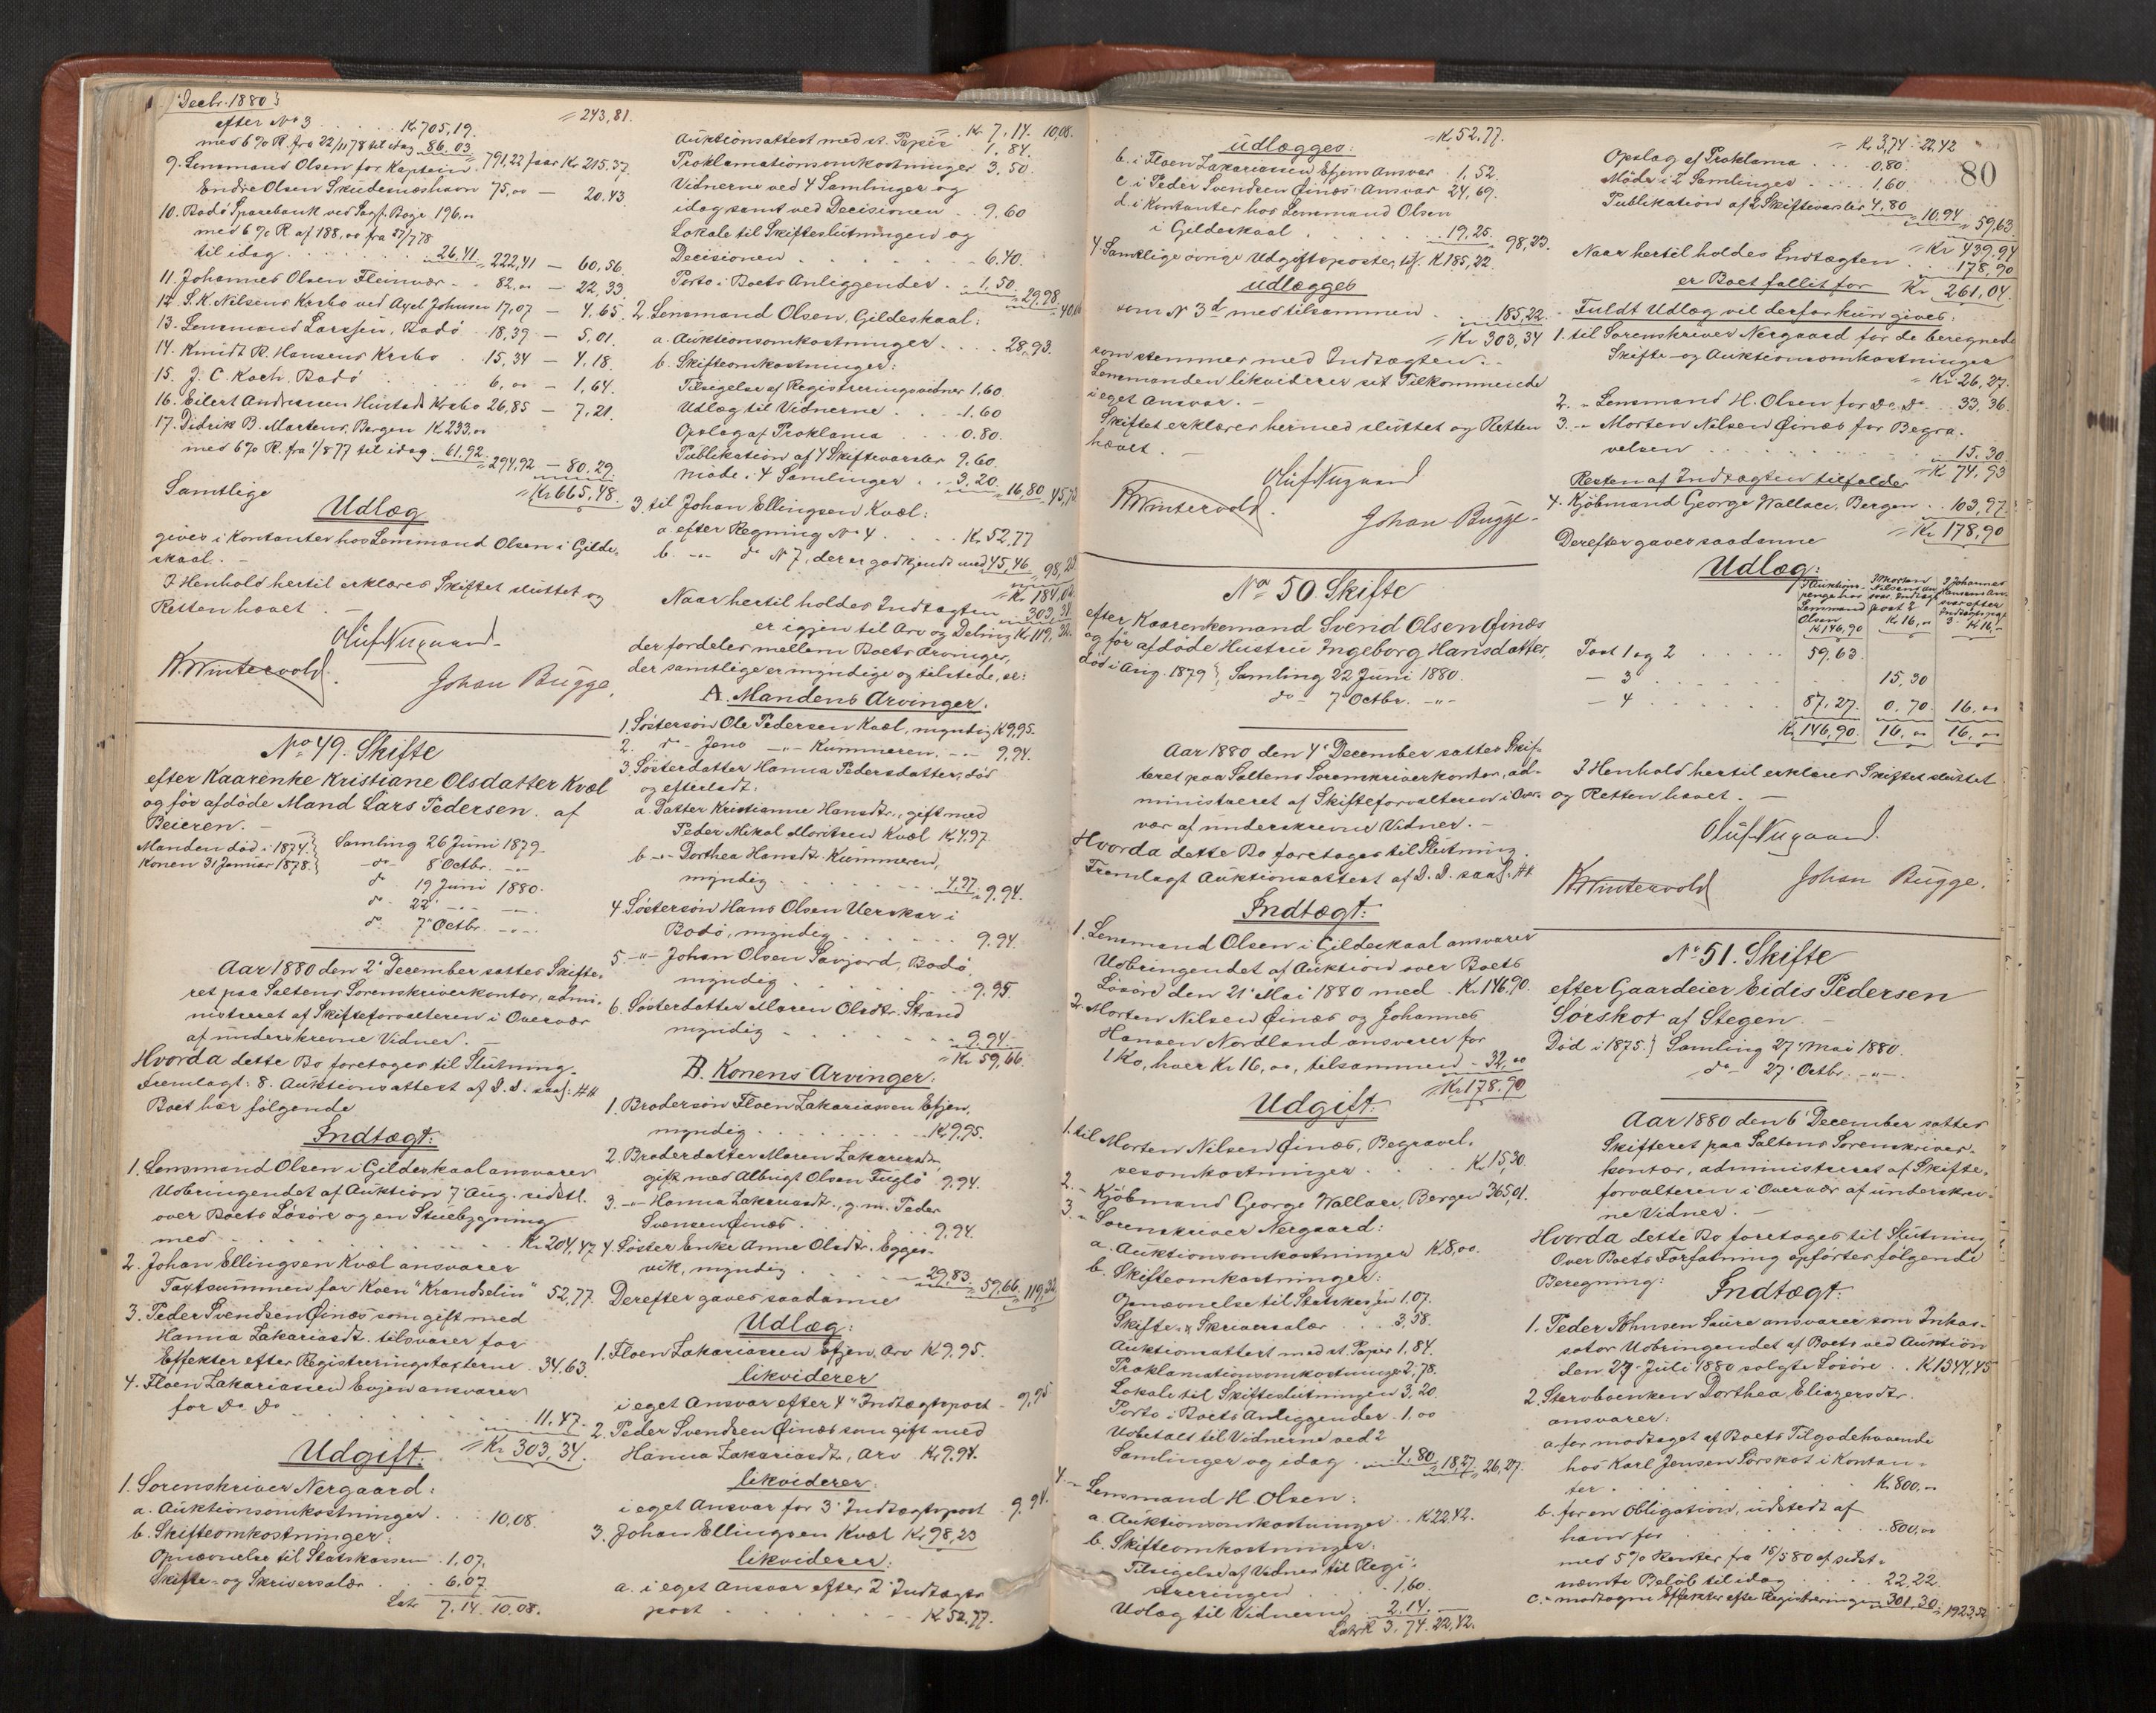 Decbr. 1880
efter No 3 . . . . Kr 705,19. = 243,81.
med 6 % R. fra 22/11 78 til idag 86.03
9. Lensmand Olsen for Kaptein 791,22 faar Kr 215,37.
Endre Olsen Skudesnæshavn 75,00 — 20.43
10. Bodö Sparebank ved Sagf. Boye 196,00
med 6 % R af 188,00 fra 27/7 78
til idag . . . . . 26.41 = 222,41 — 60,56
11. Johannes Olsen Fleinvær . . 82,00 — 22,33
12. S. K. Nilsens Krsbo ved Axel Johnsen 17,07 — 4,65
13. Lensmand Larssen, Bodö . 18,39 — 5,01.
14. Knudt R. Hansens Krsbo . 15,34 — 4,18.
15. J. C. Koch, Bodö . . . 6,00 — 1,64.
16. Eilert Andreassen Hustads Krsbo 26,85 — 7,21.
17. Didrik B. Martens, Bergen K 233,00
med 6 % R. fra 1/8 77 til idag 61,92 = 294,92 — 80,29.
= Kr 665,48.
Samtlige
Udlæg
gives i Kontanter hos Lensmand Olsen i Gilde-
skaal. —
I Henhold hertil erklæres Skiftet sluttet og
Retten hævet. —
Oluf Nugaard
K. Wintervold.
Johan Bugge,
No 49. Skifte
efter Kaarenke Kristiane Olsdatter Kvæl
og för afdöde Mand Lars Pedersen. af
Beieren. —
Manden död i 1874. } Samling 26 Juni 1879.
Konen 31 Januar 1878. } do 8 Octbr. —"—
do 19 Juni 1880.
do 22' —"—
do 7' Octbr. —"—
Aar 1880 den 2' December sattes Skifte-
ret paa Saltens Sorenskriverkontor, admi-
nistreret af Skifteforvalteren i Overvær
af underskrevne Vidner. —
Hvorda dette Bo foretages til Slutning.
Fremlagt: 8. Auktionsattest af D. D. saal: ##
Boet har fölgende
Indtægt:
1. Lensmand Olsen i Gildeskaal ansvarer
Udbringendet af Auktion 7' Aug. sidstl.
over Boets Lösöre og en Stuebygning
med . . . . Kr. 204,47
2. Johan Ellingsen Kvæl ansvarer
Taxtsummen for Koen "Krandselin" 52,77.
3. Peder Svendsen Öinæs som gift med
Hanna Zakariasdt. tilsvarer for
Effekter efter Registreringstaxterne . 34.63.
4. Floen Zakariassen Evjen ansvarer
for do do . . . . 11,47.
= Kr 303,34.
Udgift:
1. Sorenskriver Nergaard:
a. Auktionsomkostninger . . 10,08.
b. Skifteomkostninger:
Opnævnelse til Statskassen . 1,07.
Skifte- og Skriversalær . . 6,07
Latr 7.14. 10,08.
= Kr 7,14. 10,08.
Auktionsattest med st. Papir . 1,84.
Proklamationsomkostninger 3,50.
Vidnerne ved 4 Samlinger og
idag samt ved Decisionen . . 9,60
Lokale til Skifteslutningen og
Decisionen . . . . 6,40.
Porto i Boets Anliggender . . 1,50 = 29,98
= 40,06
2. Lensmand Olsen, Gildeskaal:
a. Auktionsomkostninger . . . 28,93.
b. Skifteomkostninger:
Tilsigelse af Registreringsvidner 1,60.
Udlæg til Vidnerne . . . 1.60
Opslag af Proklama . . . 0.80.
Publikation af 4 Skiftevarsler 9,60.
Möde i 4 Samlinger . . . 3,20 = 16,80 45,73
3. til Johan Ellingsen Kvæl:
a. efter Regning No 4 . . . Kr. 52,77
b. —"— do No 7, der er godkjendt med 45,46 = 98,23
= Kr 184,02
Naar hertil holdes Indtægten . . 303,34.
er igjen til Arv og Deling Kr 119,32.
der fordeles mellem Boets Arvinger,
der samtlige er myndige og tilstede, se:
A. Mandens Arvinger.
1. Söstersön Ole Pedersen Kvæl, myndig K 9,95.
2. do Jens —"— Kummeren. —"— 9,94.
3. Sösterdatter Hanna Pedersdatter, död
og efterladt:
a. Datter Kristianne Hansdtr., gift med
Peder Mikal Moritsen Kvæl K 4,97
b. —"— Dorthea Hansdt. Kummeren,
myndig . . . . 4,97 = 9,94.
4. Söstersön Hans Olsen Uerskar i
Bodö, myndig . . . . 9.94.
5. —"— Johan Olsen Savjord, Bodö,
myndig . . . . 9.95.
6. Sösterdatter Maren Olsdtr. Strand
myndig . . . . 9,94.
= Kr 59,66.
B. Konens Arvinger:
1. Brodersön Floen Zakariassen Efjen,
myndig . . . . K 9,95.
2. Broderdatter Maren Zakariasdt.
gift med Albrigt Olsen Fuglö 9,94.
3. —"— Hanna Zakariasdt., g. m. Peder
Svensen Öinæs . . . . 9,94.
4. Söster Enke Anne Olsdtr. Egges-
vik, myndig . . . 29,83 = 59,66 = 119,32
Derefter gaves saadanne
Udlæg:
1. Floen Zakariassen Efjen, Arv K 9,95.
likviderer
i eget Ansvar efter 4' Indtægtspost - 9,95
2. Peder Svendsen Öinæs som gift med
Hanna Zakariasdt, Arv K 9.94.
likviderer:
i eget Ansvar for 3' Indtægtspost . 9,94.
3. Johan Ellingsen Kvæl Kr 98,23
likviderer:
a. i eget Ansvar efter 2' Indtægts-
post . . . . K 52,77.
80
= K 52,77.
udlægges:
b. i Floen Zakariassen Efjens Ansvar . 1,52.
c. i Peder Svendsen Öinæs' Ansvar 24,69.
d. i Kontanter hos Lensmand Olsen
i Gildeskaal . . . 19,25 = 98,23.
4. Samtlige övrige Udgiftsposter, tils. K 185,22.
udlægges
som No 3 d med tilsammen . . 185,22.
= Kr 303,34
som stemmer med Indtægten. —
Lensmanden likviderer sit Tilkommende
i eget Ansvar. —
Skiftet erklæres hermed sluttet og Retten
hævet. —
Oluf Nugaard
K. Wintervold.
Johan Bugge.
No 50. Skifte
efter Kaarenkemand Svend Olsen Öinæs
og för afdöde Hustru Ingeborg Hansdatter,
död i Aug. 1879 } Samling 22 Juni 1880.
do 7' Octbr. —"—
Aar 1880 den 4' December sattes Skif-
teret paa Saltens Sorenskriverkontor, ad-
ministreret af Skifteforvalteren i Over-
vær af underskrevne Vidner. —
Hvorda dette Bo foretages til Slutning.
Fremlagt Auktionsattest af D. D. saal: ##
Indtægt:
1. Lensmand Olsen i Gildeskaal ansvarer
Udbringendet af Auktion over Boets
Lösöre den 21' Mai 1880 med . Kr. 146,90.
2. Morten Nilsen Öinæs og Johannes
Hansen Nordland ansvarer for
1 Ko, hver Kr 16,00, tilsammen - 32,00
= Kr 178,90
Udgift:
1. til Morten Nilsen Öinæs, Begravel-
sesomkostninger . . . . K. 15,30.
2. - Kjöbmand George Wallace, Bergen 365,01.
3. - Sorenskriver Nergaard:
a. Auktionsomkostninger K. 8,00.
b. Skifteomkostninger:
Opnævnelse til Statskassen 1.07.
Skifte- & Skriversalær . . 3,58.
Auktionsattest med st. Papir 1.84.
Proklamationsomkostninger 2,78.
Lokale til Skifteslutningen 3,20
Porto i Boets Anliggender . 1,00
Udbetalt til Vidnerne ved 2
Samlinger og idag . . 4,80 = 18,27 = 26,27.
4. - Lensmand H. Olsen:
a. Auktionsomkostninger . . K 22,42.
b. Skifteomkostninger:
Tilsigelse af Vidner til Regi-
streringen . . . . 1,60.
Udlæg til Vidnerne . 2.14.
Latr K 3.74. 22,42.
= Kr 3,74 = 22,42
Opslag af Proklama . . . 0,80.
Möde i 2 Samlinger . . . . 1,60.
Publikation af 2 Skiftevarsler 4,80 = 10.94 = 59,63.
= Kr 439,94
Naar hertil holdes Indtægten . . 178,90
er Boet fallit for Kr. 261,04.
Fuldt Udlæg vil derfor kun gives:
1. til Sorenskriver Nergaard for de beregnede
Skifte- og Auktionsomkostninger
= Kr 26,27.
2. - Lensmand H. Olsen for do. do. . . 33,36.
3. - Morten Nilsen Öinæs for Begra-
velsen . . . . 15,30
= Kr 74,93
Resten af Indtægten tilfalder
4. Kjöbmand George Wallace, Bergen . . 103,97.
= Kr 178,90
Derefter gaves saadanne
Udlæg:
I Auktions- penge hos Lensmand Olsen K 146,90
I Morten Nilsens An- svar, Indtægt post 2 K 16,00
I Johannes Hansens An- svar efter Indtægtspost K 16,-
Post 1 og 2 . . . . 59,63.
— 3 . . . . 15,30
— 4 . . . . 87,27. 0,70 16,00
K. 146,90. 16,00 16,00
I Henhold hertil erklæres Skiftet sluttet
og Retten hævet. —
Oluf Nugaard.
K. Wintervold
Johan Bugge.
No 51. Skifte
efter Gaardeier Eidis Pedersen
Sörskot af Stegen.
Död i 1875. } Samling 27' Mai 1880.
do 27' Octbr. —"—
Aar 1880 den 6' December sattes
Skifteret paa Saltens Sorenskriver-
kontor, administreret af Skifte-
forvalteren i Overvær af underskrev-
ne Vidner. —
Hvorda dette Bo foretages til Slutning
Over Boets Forfatning opförtes fölgende
Beregning:
Indtægt:
1. Peder Johnsen Saure ansvarer som Inkas-
sator Udbringendet af Boets ved Auktion
den 27' Juli 1880 solgte Lösöre . . K 1344,45
2. Stervboenken Dorthea Eliazersdtr.
ansvarer:
a. for modtaget af Boets Tilgodehavende
hos Karl Jensen Sörskot i Kontan-
ter . . . . K. 800,00
b. for en Obligation, udstedt af
ham for . . . . 800,00
med 5 % Renter fra 15/5 80 af sidst-
nævnte Belöb til idag . . . 22,22.
c. - modtagne Effekter efter Registreringen 301,30 = 1923,52